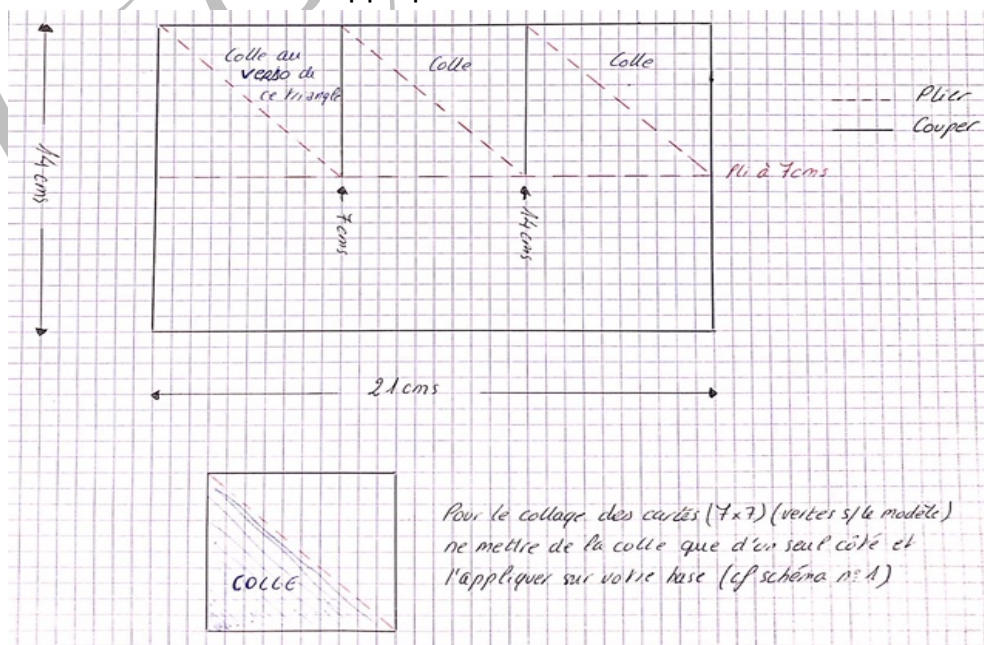 Colle au
verso de
ce triangle
Colle
Colle
Plier
Couper
14 cms
Pli à 7cms
7 cms
14 cms
21 cms
Pour le collage des cartes (7x7) (vertes s/le modèle)
ne mettre de la colle que d'un seul côté et
l'appliquer sur votre base (cf schéma n° 1)
COLLE